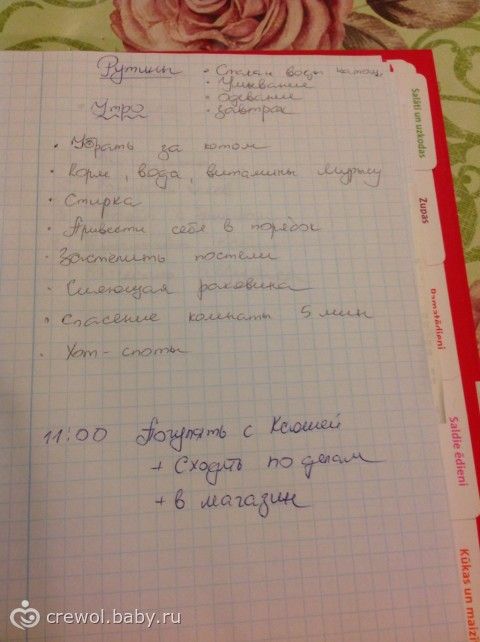 Рутины
• Стакан воды натощ
• Умывание
• Одевание
• Завтрак
Утро
• Убрать за котом
• Корм, вода, витамины Мурысу
• Стирка
• Привести себя в порядок
• Застелить постели
• Сияющая раковина
• Спасение комнаты 5 мин
• Хот-споты
11:00 Погулять с Ксюшей
+ Сходить по делам
+ в магазин
Salāti un uzkodas
Zupas
Pamatēdieni
Saldie ēdieni
Kūkas un maizī
crewol.baby.ru